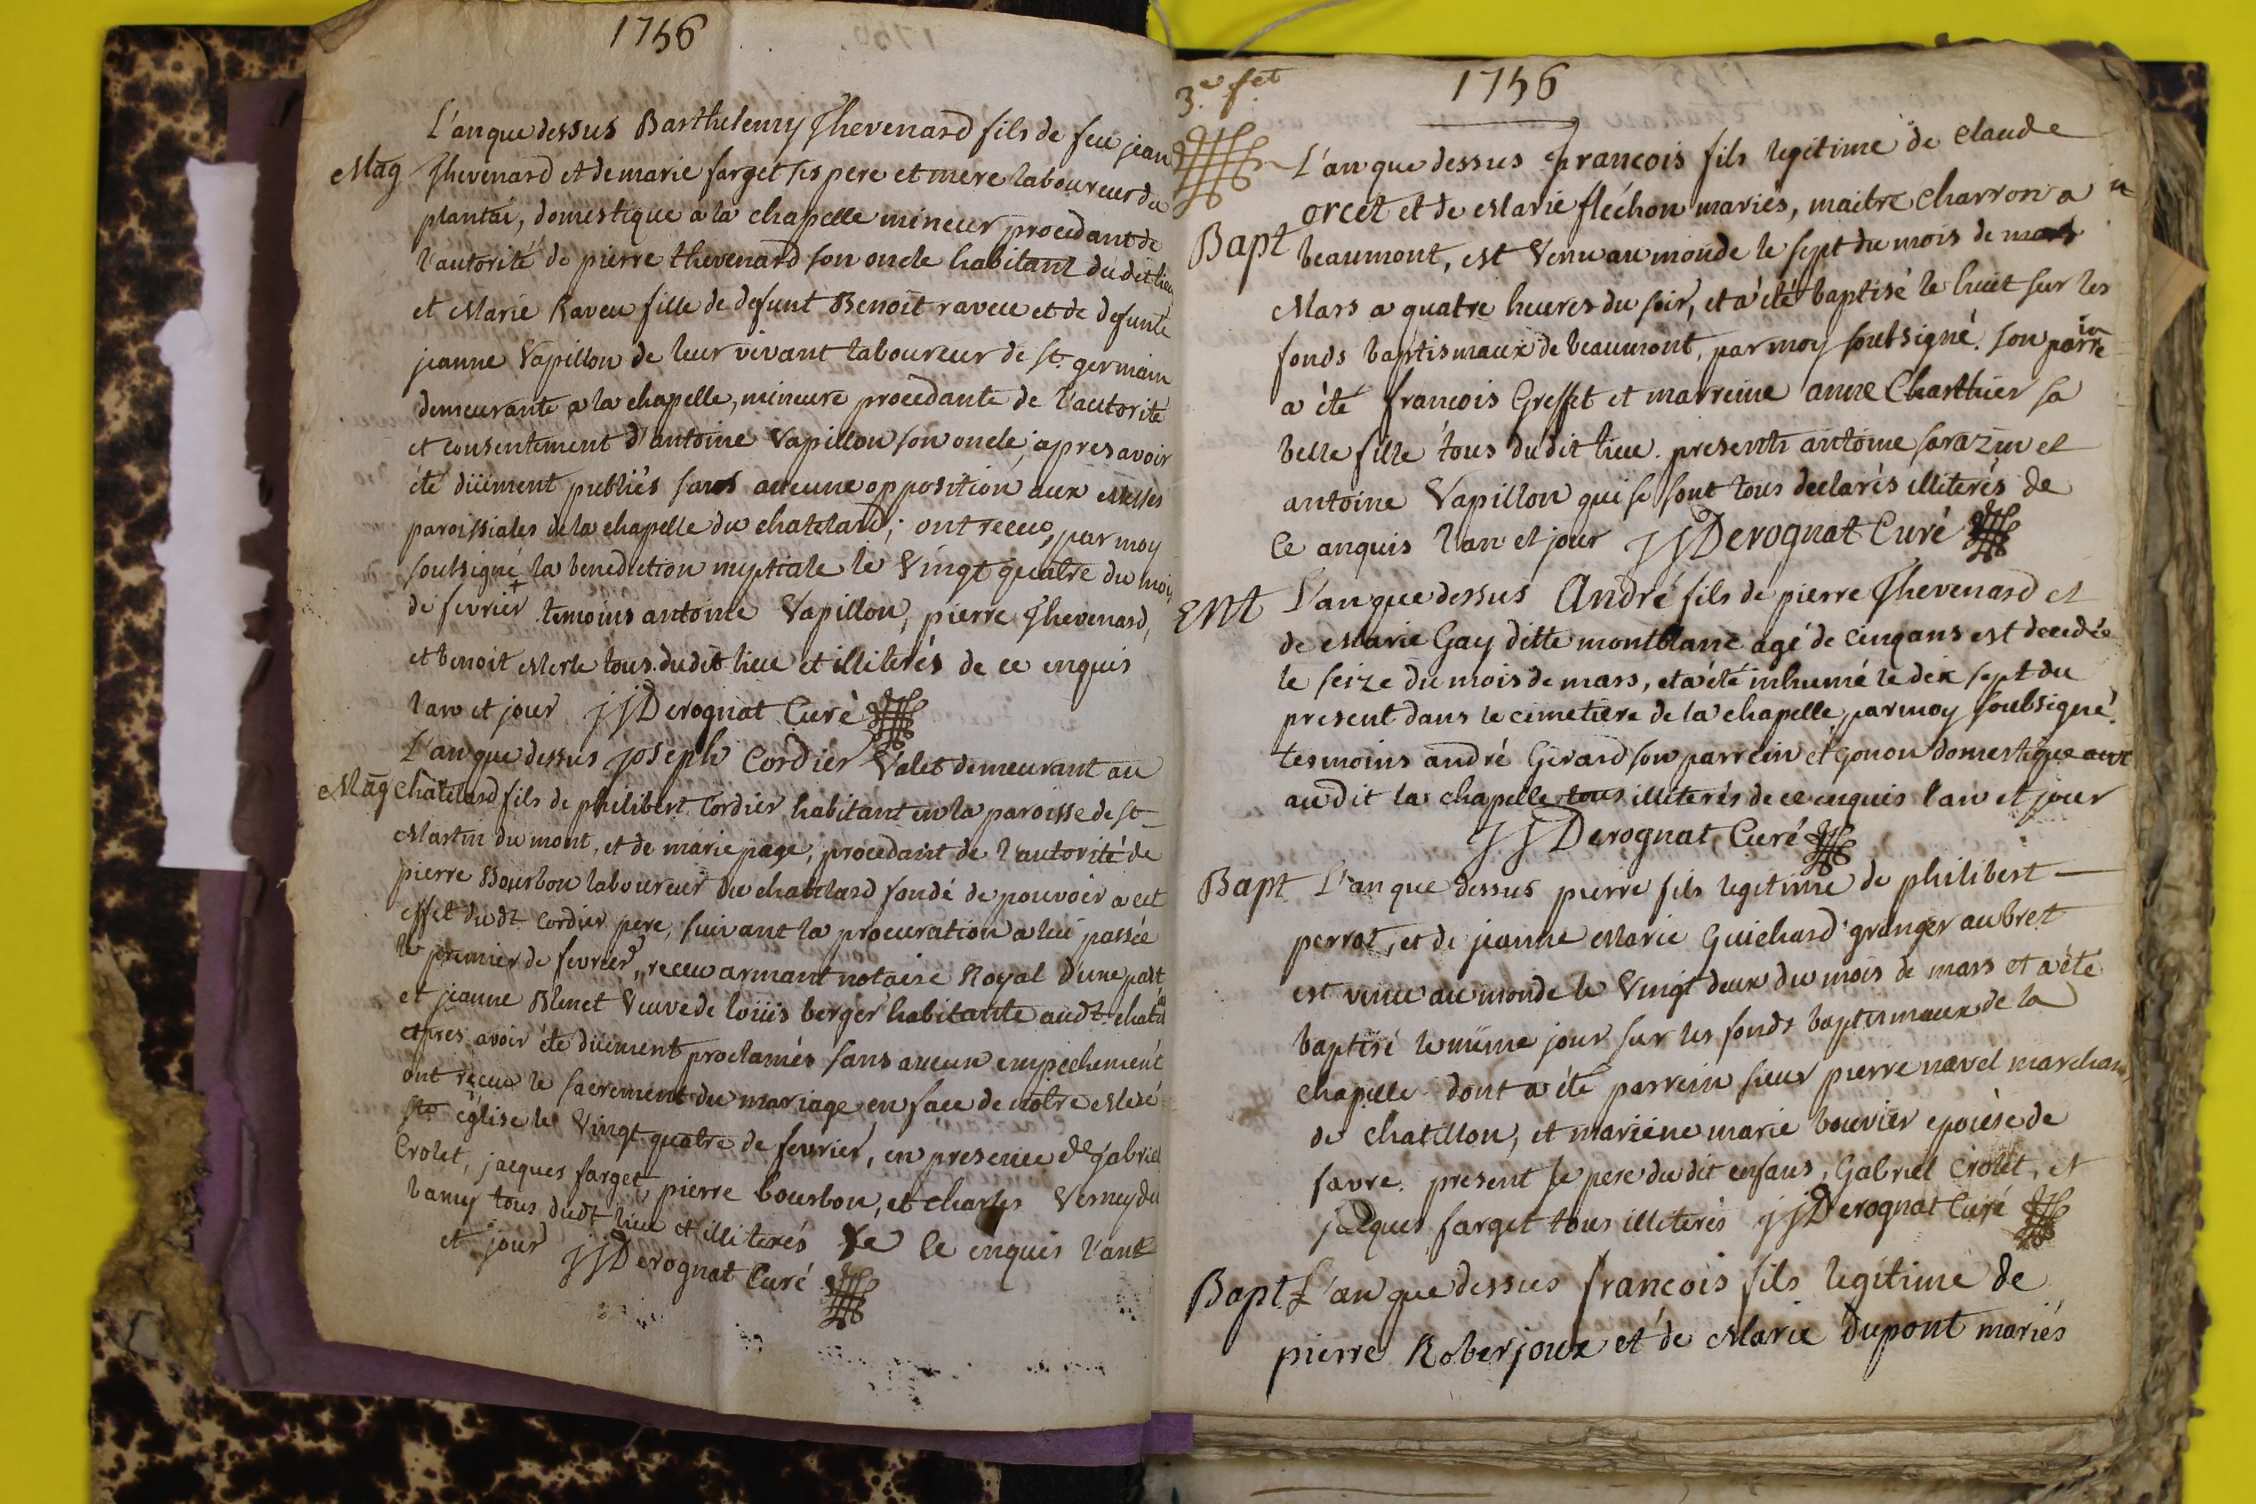 1756
L'an que dessus Barthelemy Thevenard fils de feu jean
Mag Thevenard et de marie farget ses pere et mere laboureur du
plantai, domestique a la chapelle mineur procedant de
l'autorité de pierre thevenard son oncle habitant du dit lieu
et Marie Raveu fille de defunt Benoit raveu et de defunte
jeanne Vapillon de leur vivant laboureur de st. germain
demeurante a la chapelle, mineure procedante de l'autorité
et consentement d'antoine Vapillon son oncle, apres avoir
été düement publiés sans aucune opposition aux Messes
paroissiales de la chapelle du chatelard; ont receu, par moy
soubsigné la benediction nuptiale le Vingt quatre du mois
de fevrier + temoins antoine Vapillon, pierre Thevenard,
et benoit Merle tous du dit lieu et illiterés de ce enquis
l'an et jour JJ Derognat Curé
L'an que dessus joseph Cordier Valet demeurant au
Mag chatelard fils de philibert Cordier habitant en la paroisse de st
Martin du mont, et de marie page, procedant de l'autorité de
pierre Bourbon laboureur du chatelard fondé de pouvoir a cet
effet du dt. Cordier pere, suivant la procuration a lui passée
le premier de fevrier, receu armant notaire Royal d'une part
et jeanne Blenet Veuve de loüis berger habitante au dt. chatel
apres avoir été düement proclamés sans aucun empechement
ont receu le sacrement du mariage en face de notre Mere
ste église le Vingt quatre de fevrier, en presence de gabriel
Crolet, jacques farget, pierre bourbon, et charles Verney du
ramy tous dudt lieu et illiterés de ce enquis l'an
et jour JJ Derognat Curé
3.e f.et
1756
L'an que dessus francois fils legitime de Claude
orcet et de Marie fléchon mariés, maitre Charron a
Bapt beaumont, est Venu au monde le sept du mois de
Mars a quatre heures du soir, et a été baptisé le huit sur les
fonds baptismaux de beaumont, par moy soubsigné. son parrein
a été francois Greffet et marreine anne Charthier sa
belle fille tous du dit lieu. presents antoine sarazin et
antoine Vapillon qui se sont tous declarés illiterés de
Ce anquis l'an et jour JJ Derognat Curé
Ent L'an que dessus André fils de pierre Thevenard et
de Marie Gay ditte montblanc agé de Cinq ans est decedée
le seize du mois de mars, et a été inhumé le dix sept du
present dans le cimetiere de la chapelle, par moy soubsigné.
tesmoins andré Girard son parrein et gonon domestique
au dit la chapelle tous illiterés de ce enquis l'an et jour
JJ Derognat Curé
Bapt L'an que dessus pierre fils legitime de philibert
perrat, et de jeanne Marie Guichard granger au bret
est venu au monde le Vingt deux du mois de mars et a été
baptisé le même jour sur les fonds baptismaux de la
chapelle dont a été parrein sieur pierre navel marchand
de chatillon, et mariene marie bouvier epouse de
favre. present le pere du dit enfans, Gabriel Crolet, et
jacques farget tous illiterés JJ Derognat Curé
Bapt. L'an que dessus francois fils legitime de
pierre Roberjoux et de Marie Dupont mariés